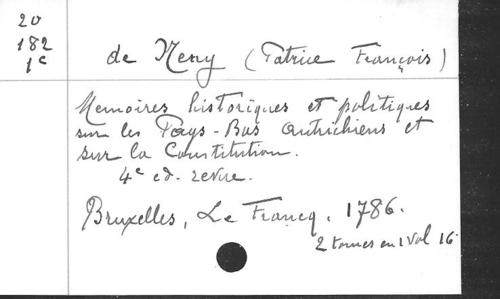 20
182
1c
de Neny (Patrice François)
Memoires historiques et politiques
sur les Pays-Bas Autrichiens et
sur la Constitution.
4e ed. revue.
Bruxelles, Le Francq. 1786.
2 tomes en 1 vol 16